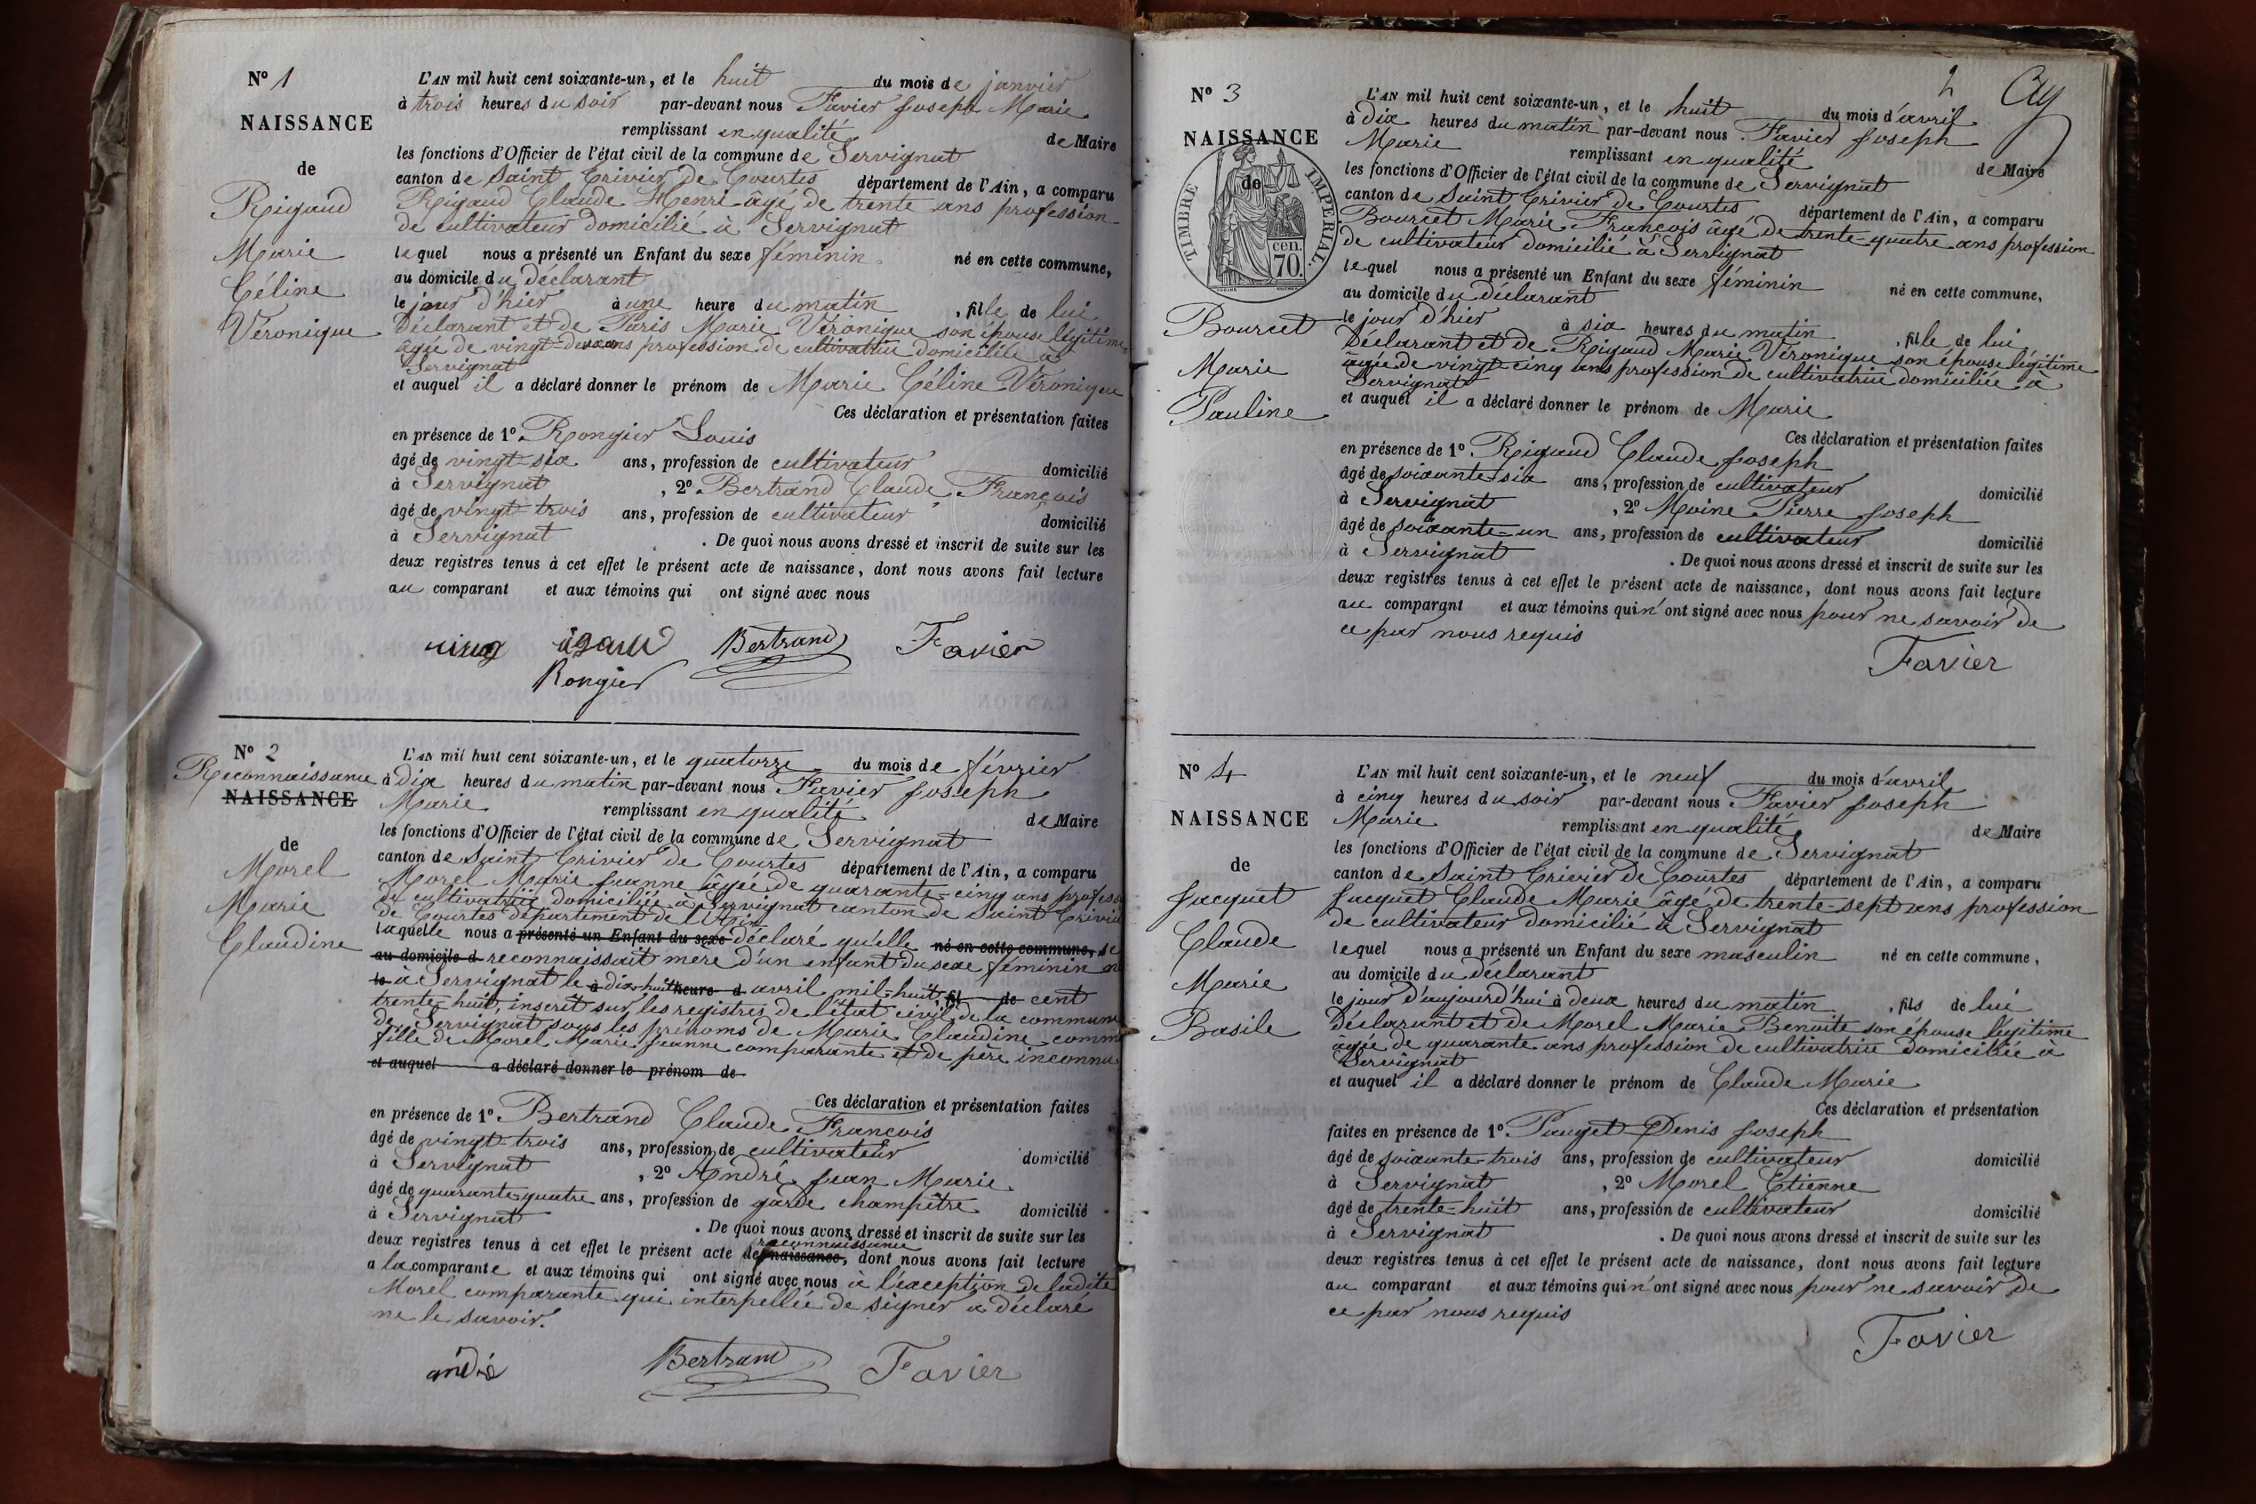 N° 1
NAISSANCE
de
Rigaud
Marie
Céline
Véronique
L'AN mil huit cent soixante-un, et le huit du mois de janvier
à trois heures du soir par-devant nous Favier Joseph Marie
remplissant en qualité de Maire
les fonctions d'Officier de l'état civil de la commune de Servignat
canton de Saint Trivier de Courtes département de l'Ain, a comparu
Rigaud Claude Henri âgé de trente ans profession
de cultivateur domicilié à Servignat
lequel nous a présenté un Enfant du sexe féminin né en cette commune,
au domicile du déclarant
le jour d'hier à une heure du matin, fille de lui
déclarant et de Paris Marie Véronique son épouse légitime
âgée de vingt-deux ans profession de cultivatrice domiciliée à
Servignat
et auquel il a déclaré donner le prénom de Marie Céline Véronique
Ces déclaration et présentation faites
en présence de 1° Rongier Louis
âgé de vingt-six ans, profession de cultivateur domicilié
à Servignat, 2° Bertrand Claude François
âgé de vingt trois ans, profession de cultivateur domicilié
à Servignat. De quoi nous avons dressé et inscrit de suite sur les
deux registres tenus à cet effet le présent acte de naissance, dont nous avons fait lecture
au comparant et aux témoins qui ont signé avec nous
Bertrand Favier
Rongier
N° 2
Reconnaissance
NAISSANCE
de
Morel
Marie
Claudine
L'AN mil huit cent soixante-un, et le quatorze du mois de février
à dix heures du matin par-devant nous Favier Joseph
Marie remplissant en qualité de Maire
les fonctions d'Officier de l'état civil de la commune de Servignat
canton de Saint Trivier de Courtes département de l'Ain, a comparu
Morel Marie Jeanne âgée de quarante-cinq ans profess
de cultivatrice domiciliée à Servignat canton de Saint Trivier
de Courtes département de l'Ain
laquelle nous a présenté un Enfant du sexe déclaré qu'elle né en cette commune, se
au domicile d reconnaissait mère d'un enfant du sexe féminin
le à Servignat le à dix-huit heure d avril mil-huit, fil de cent
trente-huit, inscrit sur les registres de l'état civil de la commune
de Servignat sous les prénoms de Marie Claudine comme
fille de Morel Marie Jeanne comparante et de père inconnu
et auquel a déclaré donner le prénom de
Ces déclaration et présentation faites
en présence de 1° Bertrand Claude François
âgé de vingt-trois ans, profession de cultivateur domicilié
à Servignat, 2° André Jean Marie
âgé de quarante quatre ans, profession de garde champêtre domicilié
à Servignat. De quoi nous avons dressé et inscrit de suite sur les
reconnaissance
deux registres tenus à cet effet le présent acte de naissance, dont nous avons fait lecture
a la comparante et aux témoins qui ont signé avec nous à l'exception de ladite
Morel comparante qui interpellée de signer a déclaré
ne le savoir.
andré Bertrand Favier
2
N° 3
NAISSANCE
de
TIMBRE IMPERIAL.
70 cen.
Bourcet
Marie
Pauline
L'AN mil huit cent soixante-un, et le huit du mois d'avril
à dix heures du matin par-devant nous Favier Joseph
Marie remplissant en qualité de Maire
les fonctions d'Officier de l'état civil de la commune de Servignat
canton de Saint Trivier de Courtes département de l'Ain, a comparu
Bourcet Marie François âgé de trente-quatre ans profession
de cultivateur domicilié à Servignat
lequel nous a présenté un Enfant du sexe féminin né en cette commune,
au domicile du déclarant
le jour d'hier à six heures du matin, fille de lui
déclarant et de Rigaud Marie Véronique son épouse légitime
âgée de vingt-cinq ans profession de cultivatrice domiciliée à
Servignat
et auquel il a déclaré donner le prénom de Marie
Ces déclaration et présentation faites
en présence de 1° Rigaud Claude Joseph
âgé de soixante-six ans, profession de cultivateur domicilié
à Servignat, 2° Moine Pierre Joseph
âgé de soixante-un ans, profession de cultivateur domicilié
à Servignat. De quoi nous avons dressé et inscrit de suite sur les
deux registres tenus à cet effet le présent acte de naissance, dont nous avons fait lecture
au comparant et aux témoins qui n'ont signé avec nous pour ne savoir de
ce par nous requis
Favier
N° 4
NAISSANCE
de
Jacquet
Claude
Marie
Basile
L'AN mil huit cent soixante-un, et le neuf du mois d'avril
à cinq heures du soir par-devant nous Favier Joseph
Marie remplissant en qualité de Maire
les fonctions d'Officier de l'état civil de la commune de Servignat
canton de Saint Trivier de Courtes département de l'Ain, a comparu
Jacquet Claude Marie âgé de trente-sept ans profession
de cultivateur domicilié à Servignat
lequel nous a présenté un Enfant du sexe masculin né en cette commune,
au domicile du déclarant
le jour d'aujourd'hui à deux heures du matin, fils de lui
déclarant et de Morel Marie Benoite son épouse légitime
âgée de quarante ans profession de cultivatrice domiciliée à
Servignat
et auquel il a déclaré donner le prénom de Claude Marie
Ces déclaration et présentation
faites en présence de 1° Pauget Denis Joseph
âgé de soixante-trois ans, profession de cultivateur domicilié
à Servignat, 2° Morel Etienne
âgé de trente-huit ans, profession de cultivateur domicilié
à Servignat. De quoi nous avons dressé et inscrit de suite sur les
deux registres tenus à cet effet le présent acte de naissance, dont nous avons fait lecture
au comparant et aux témoins qui n'ont signé avec nous pour ne savoir de
ce par nous requis
Favier